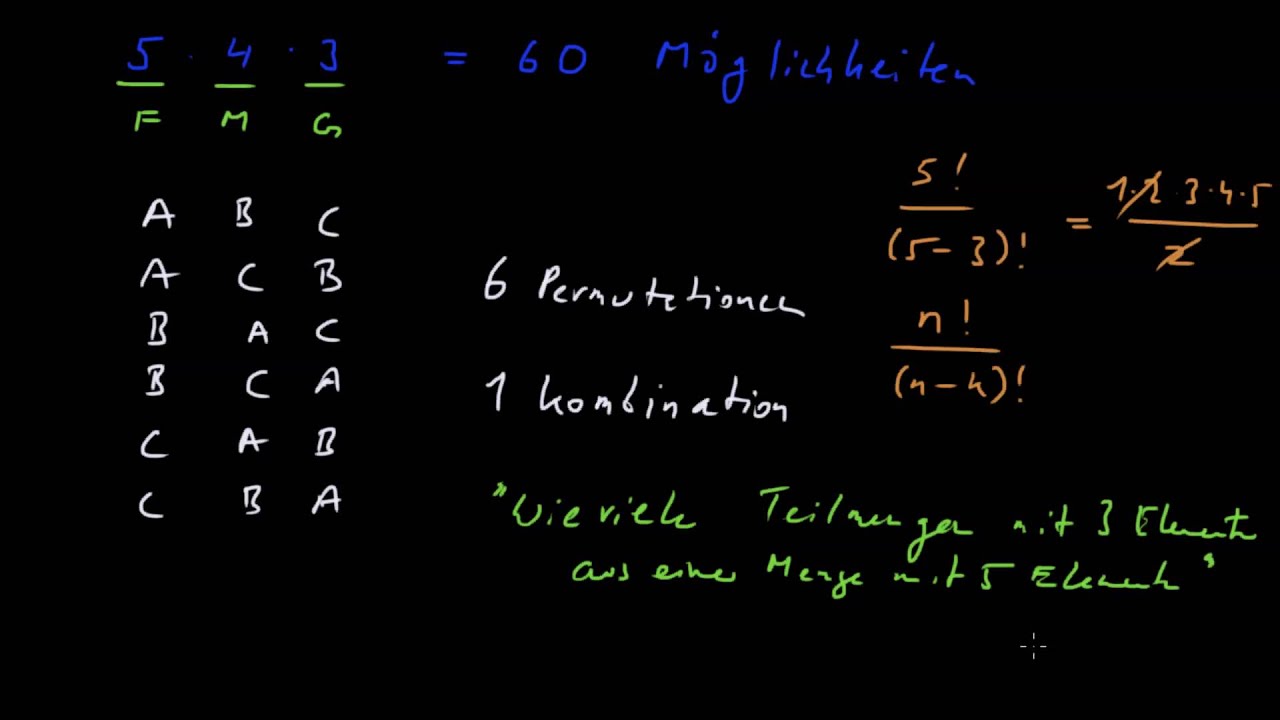 5 · 4 · 3 = 60 Möglichkeiten
F M G
A B C
A C B
B A C
B C A
C A B
C B A
6 Permutationen
1 Kombination
5! / (5-3)! = 1·2·3·4·5 / 2
n! / (n-k)!
"Wieviele Teilmengen mit 3 Elemente
aus einer Menge mit 5 Elemente"